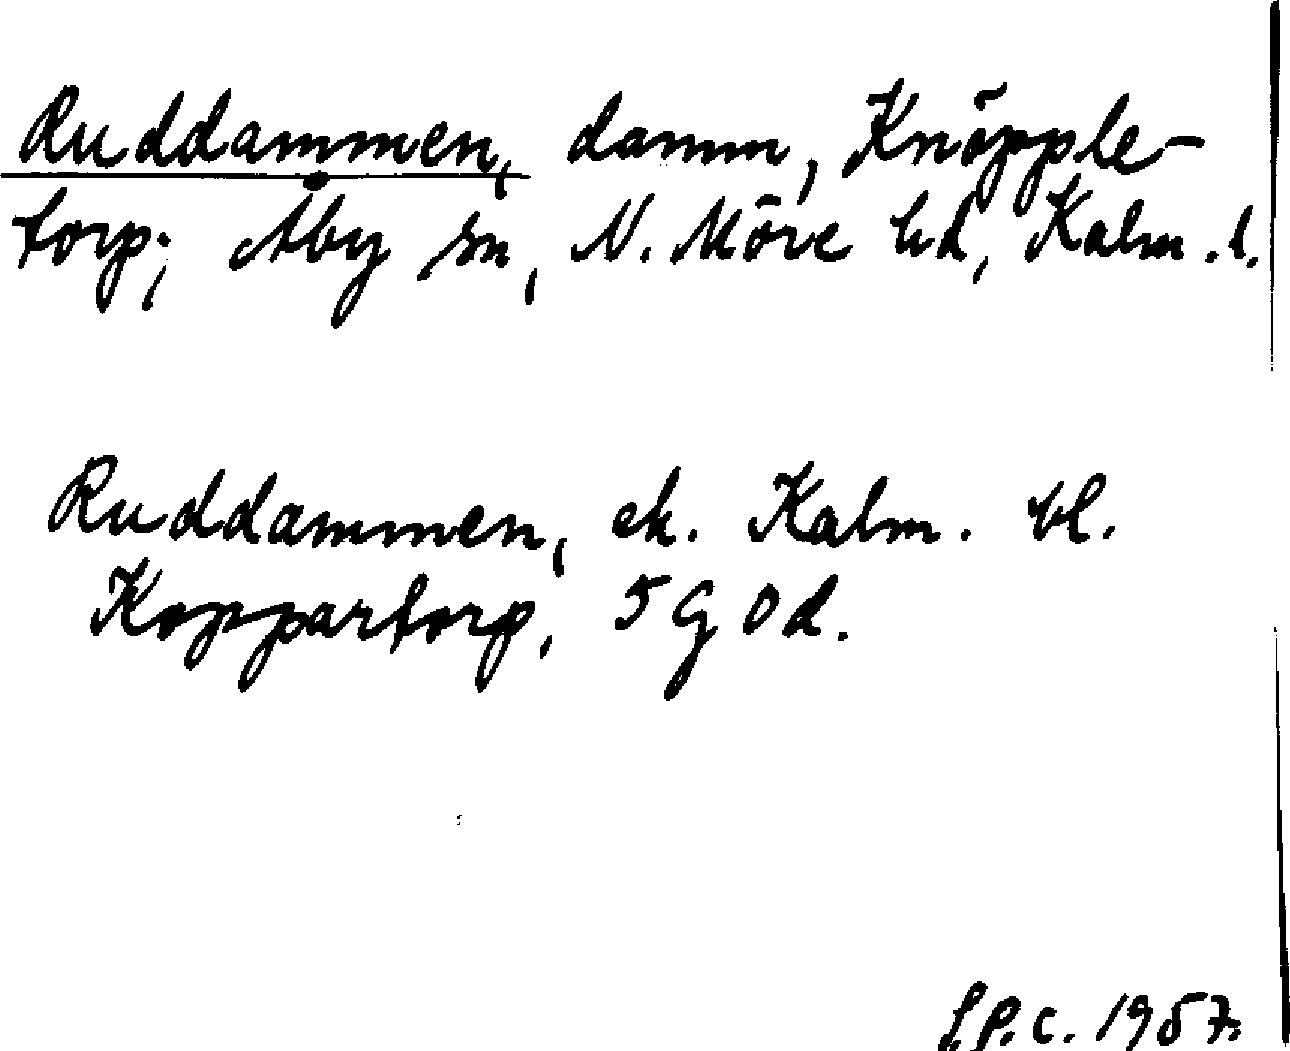 Ruddammen, damm, Knöpple-
torp; Åby sn, N. Möre hd, Kalm. l.
Ruddammen, ek. Kalm. bl.
Koppartorp, 5 G 0 d.
S.P.C. 1957.